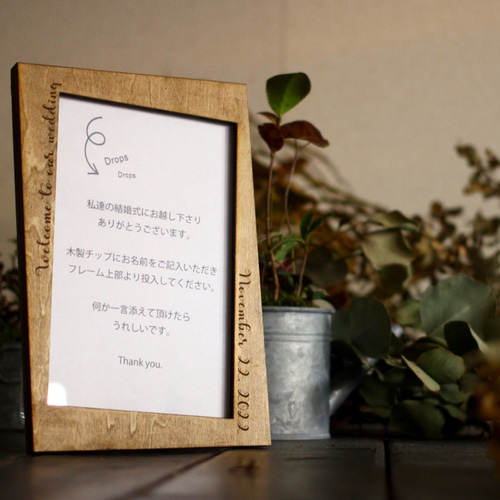 Welcome to our wedding
Drops
Drops
私達の結婚式にお越し下さり
ありがとうございます。
木製チップにお名前をご記入いただき
フレーム上部より投入してください。
何か一言添えて頂けたら
うれしいです。
Thank you.
November 22. 2022